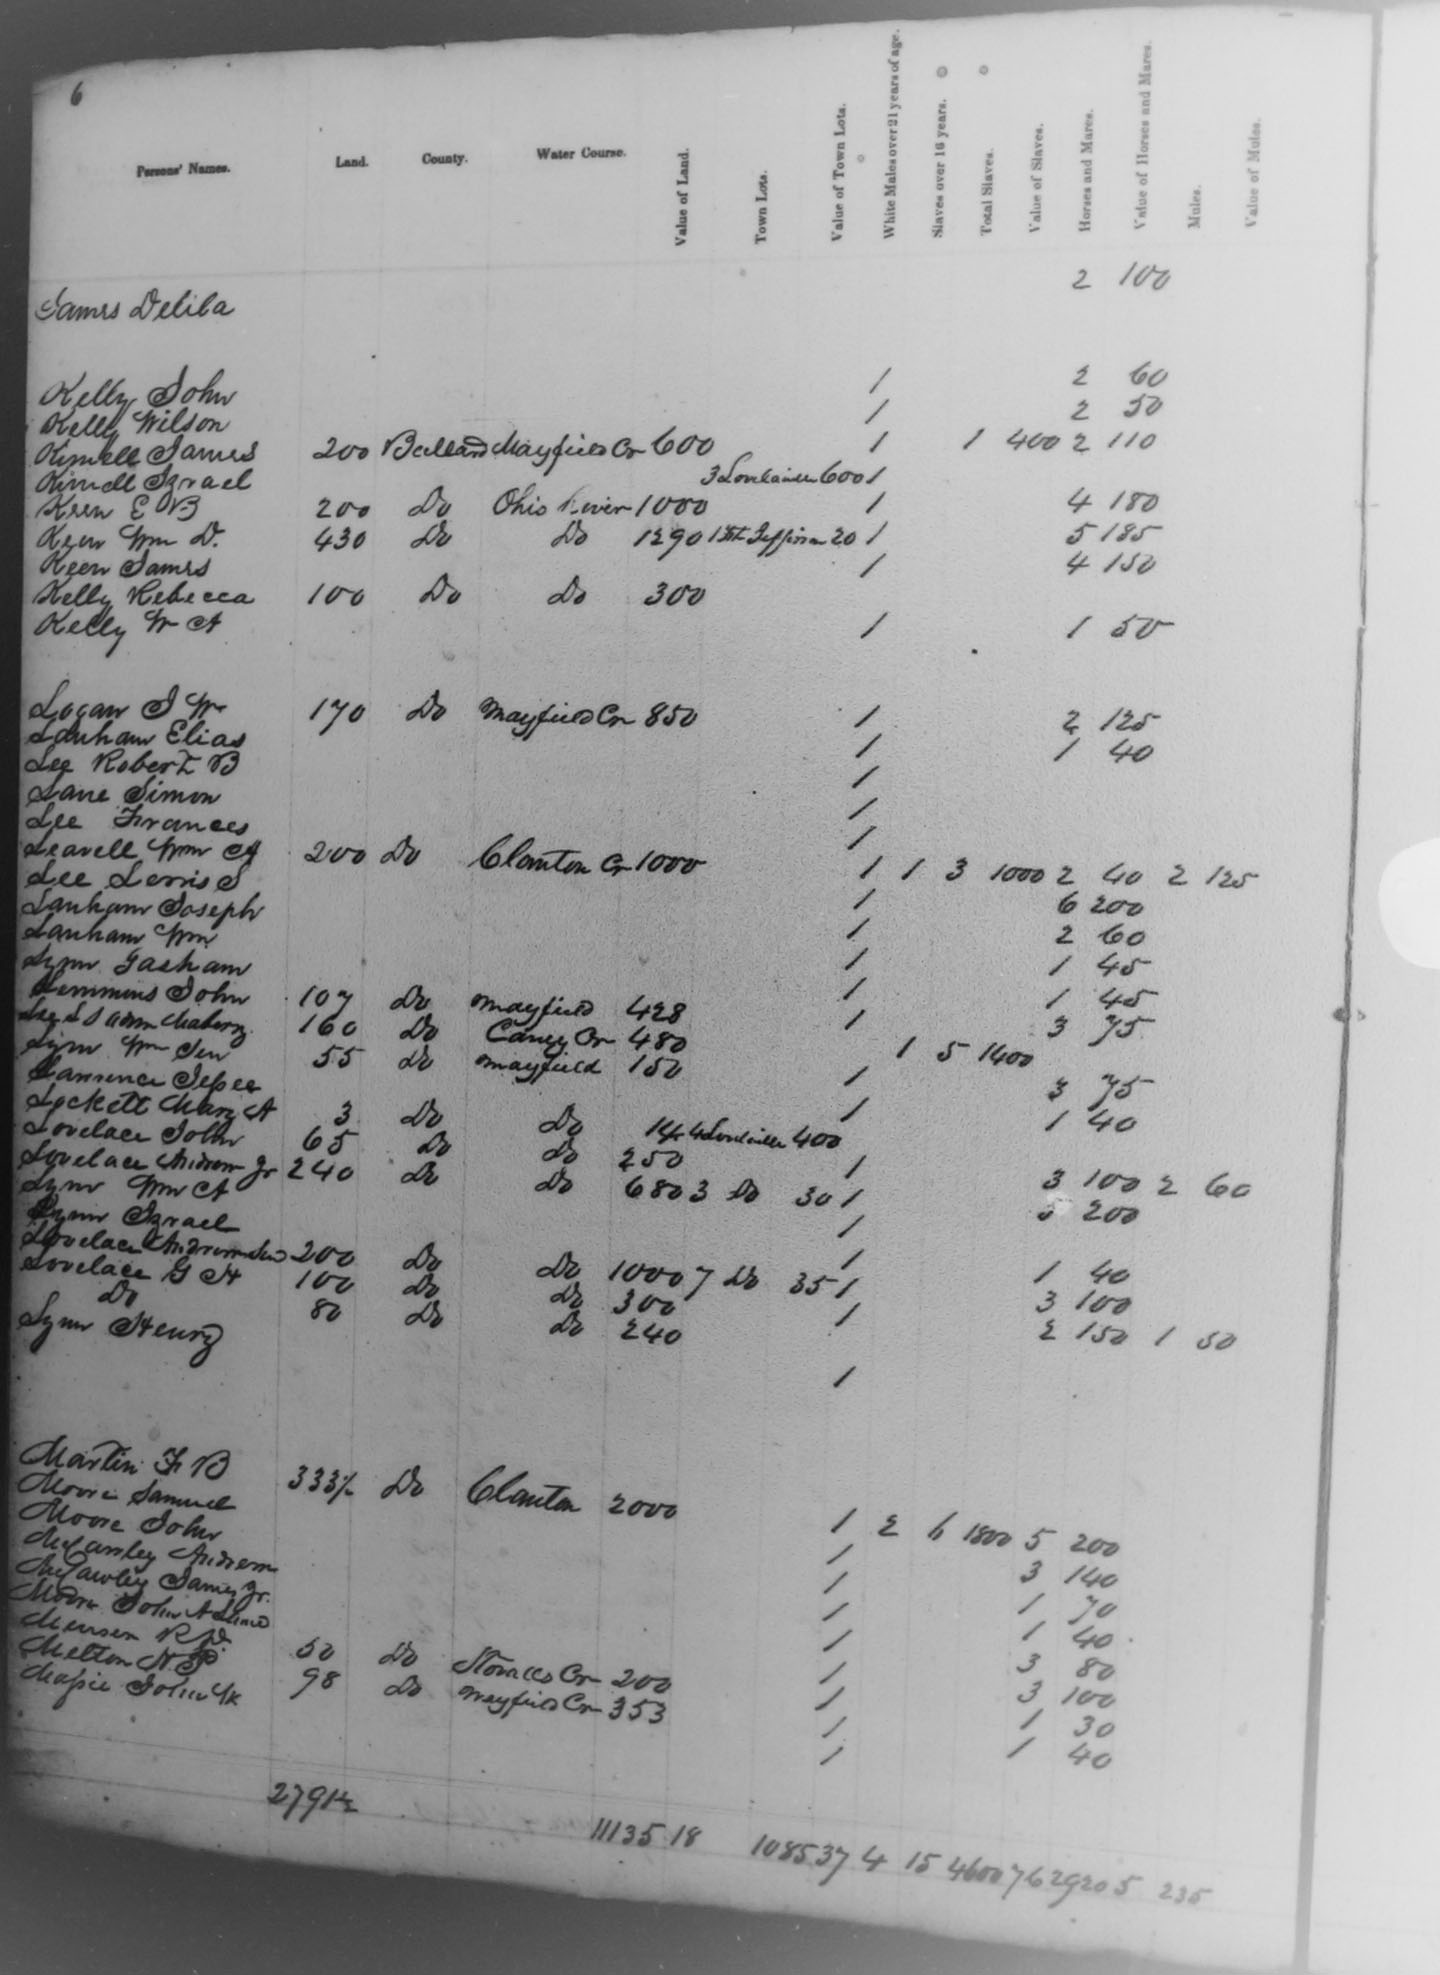 6
Persons' Names. Land. County. Water Course. Value of Land. Town Lots. Value of Town Lots. White Males over 21 years of age. Slaves over 16 years. Total Slaves. Value of Slaves. Horses and Mares. Value of Horses and Mares. Mules. Value of Mules.
James Delila 2 100
Kelly John 1 2 60
Kelly Wilson 1 2 50
Kimell James 200 Ballard Mayfield Cr 600 1 1 400 2 110
Kimell Israel 3 Lovelaceville 600 1
Keen E B 200 Do Ohio River 1000 1 4 180
Keen Wm D. 430 Do Do 1290 1 Jefferson 20 1 5 185
Keen James 1 4 150
Kelly Rebecca 100 Do Do 300
Kelly W A 1 1 50
Logan J Wm 170 Do Mayfield Cr 850 1 2 125
Lanham Elias 1 1 40
Lee Robert B 1
Lane Simon 1
Lee Frances 1
Leavell Wm A 200 Do Clanton Cr 1000 1 1 3 1000 2 40 2 125
Lee Lewis S 1 6 200
Lanham Joseph 1 2 60
Lanham Wm 1 1 45
Lynn 1 1 45
Lemmons John 107 Do Mayfield 428 1 3 75
Lee 160 Do Caney Cr 480 1 5 1400
Lynn Wm Sen 55 Do Mayfield 150 1 3 75
Lawrence Jessee 1 1 40
Lockett Mary A 3 Do Do 14 4 Lovelaceville 400
Lovelace John 65 Do Do 250 1
Lovelace Andrew Jr 240 Do Do 680 3 Do 30 1 3 100 2 60
Lynn Wm A 1 5 200
Lynn Israel 1
Lovelace Andrew Sen 200 Do Do 1000 7 Do 35 1 1 40
Lovelace G H 100 Do Do 300 1 3 100
Do 80 Do Do 240 2 150 1 50
Lynn Henry 1
Martin F B 333⅓ Do Clanton 2000 1 2 6 1800 5 200
Moore Samuel 1 3 140
Moore John 1 1 70
McCawley Andrew 1 1 40
McCawley James Jr. 1 3 80
Moore John A 1 3 100
R D. 50 Do Cr 200 1 1 30
Melton H P 98 Do Mayfield Cr 353 1 1 40
John
2791½ 11135 18 1085 37 4 15 4600 76 2920 5 235